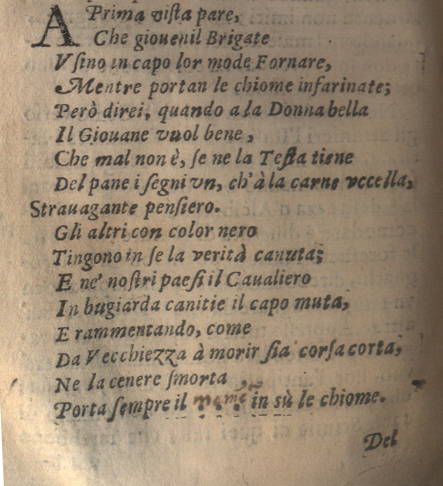 A Prima vista pare,
Che giouenil Brigate
Vsino in capo lor mode Fornare,
Mentre portan le chiome infarinate;
Però direi, quando a la Donna bella
Il Giouane vuol bene,
Che mal non è, se ne la Testa tiene
Del pane i segni vn, ch'à la carne vccella,
Strauagante pensiero.
Gli altri con color nero
Tingono in se la verità canuta;
E ne' nostri paesi il Caualiero
In bugiarda canitie il capo muta,
E rammentando, come
Da Vecchiezza à morir sia corsa corta,
Ne la cenere smorta
Porta sempre il in sù le chiome.
Del